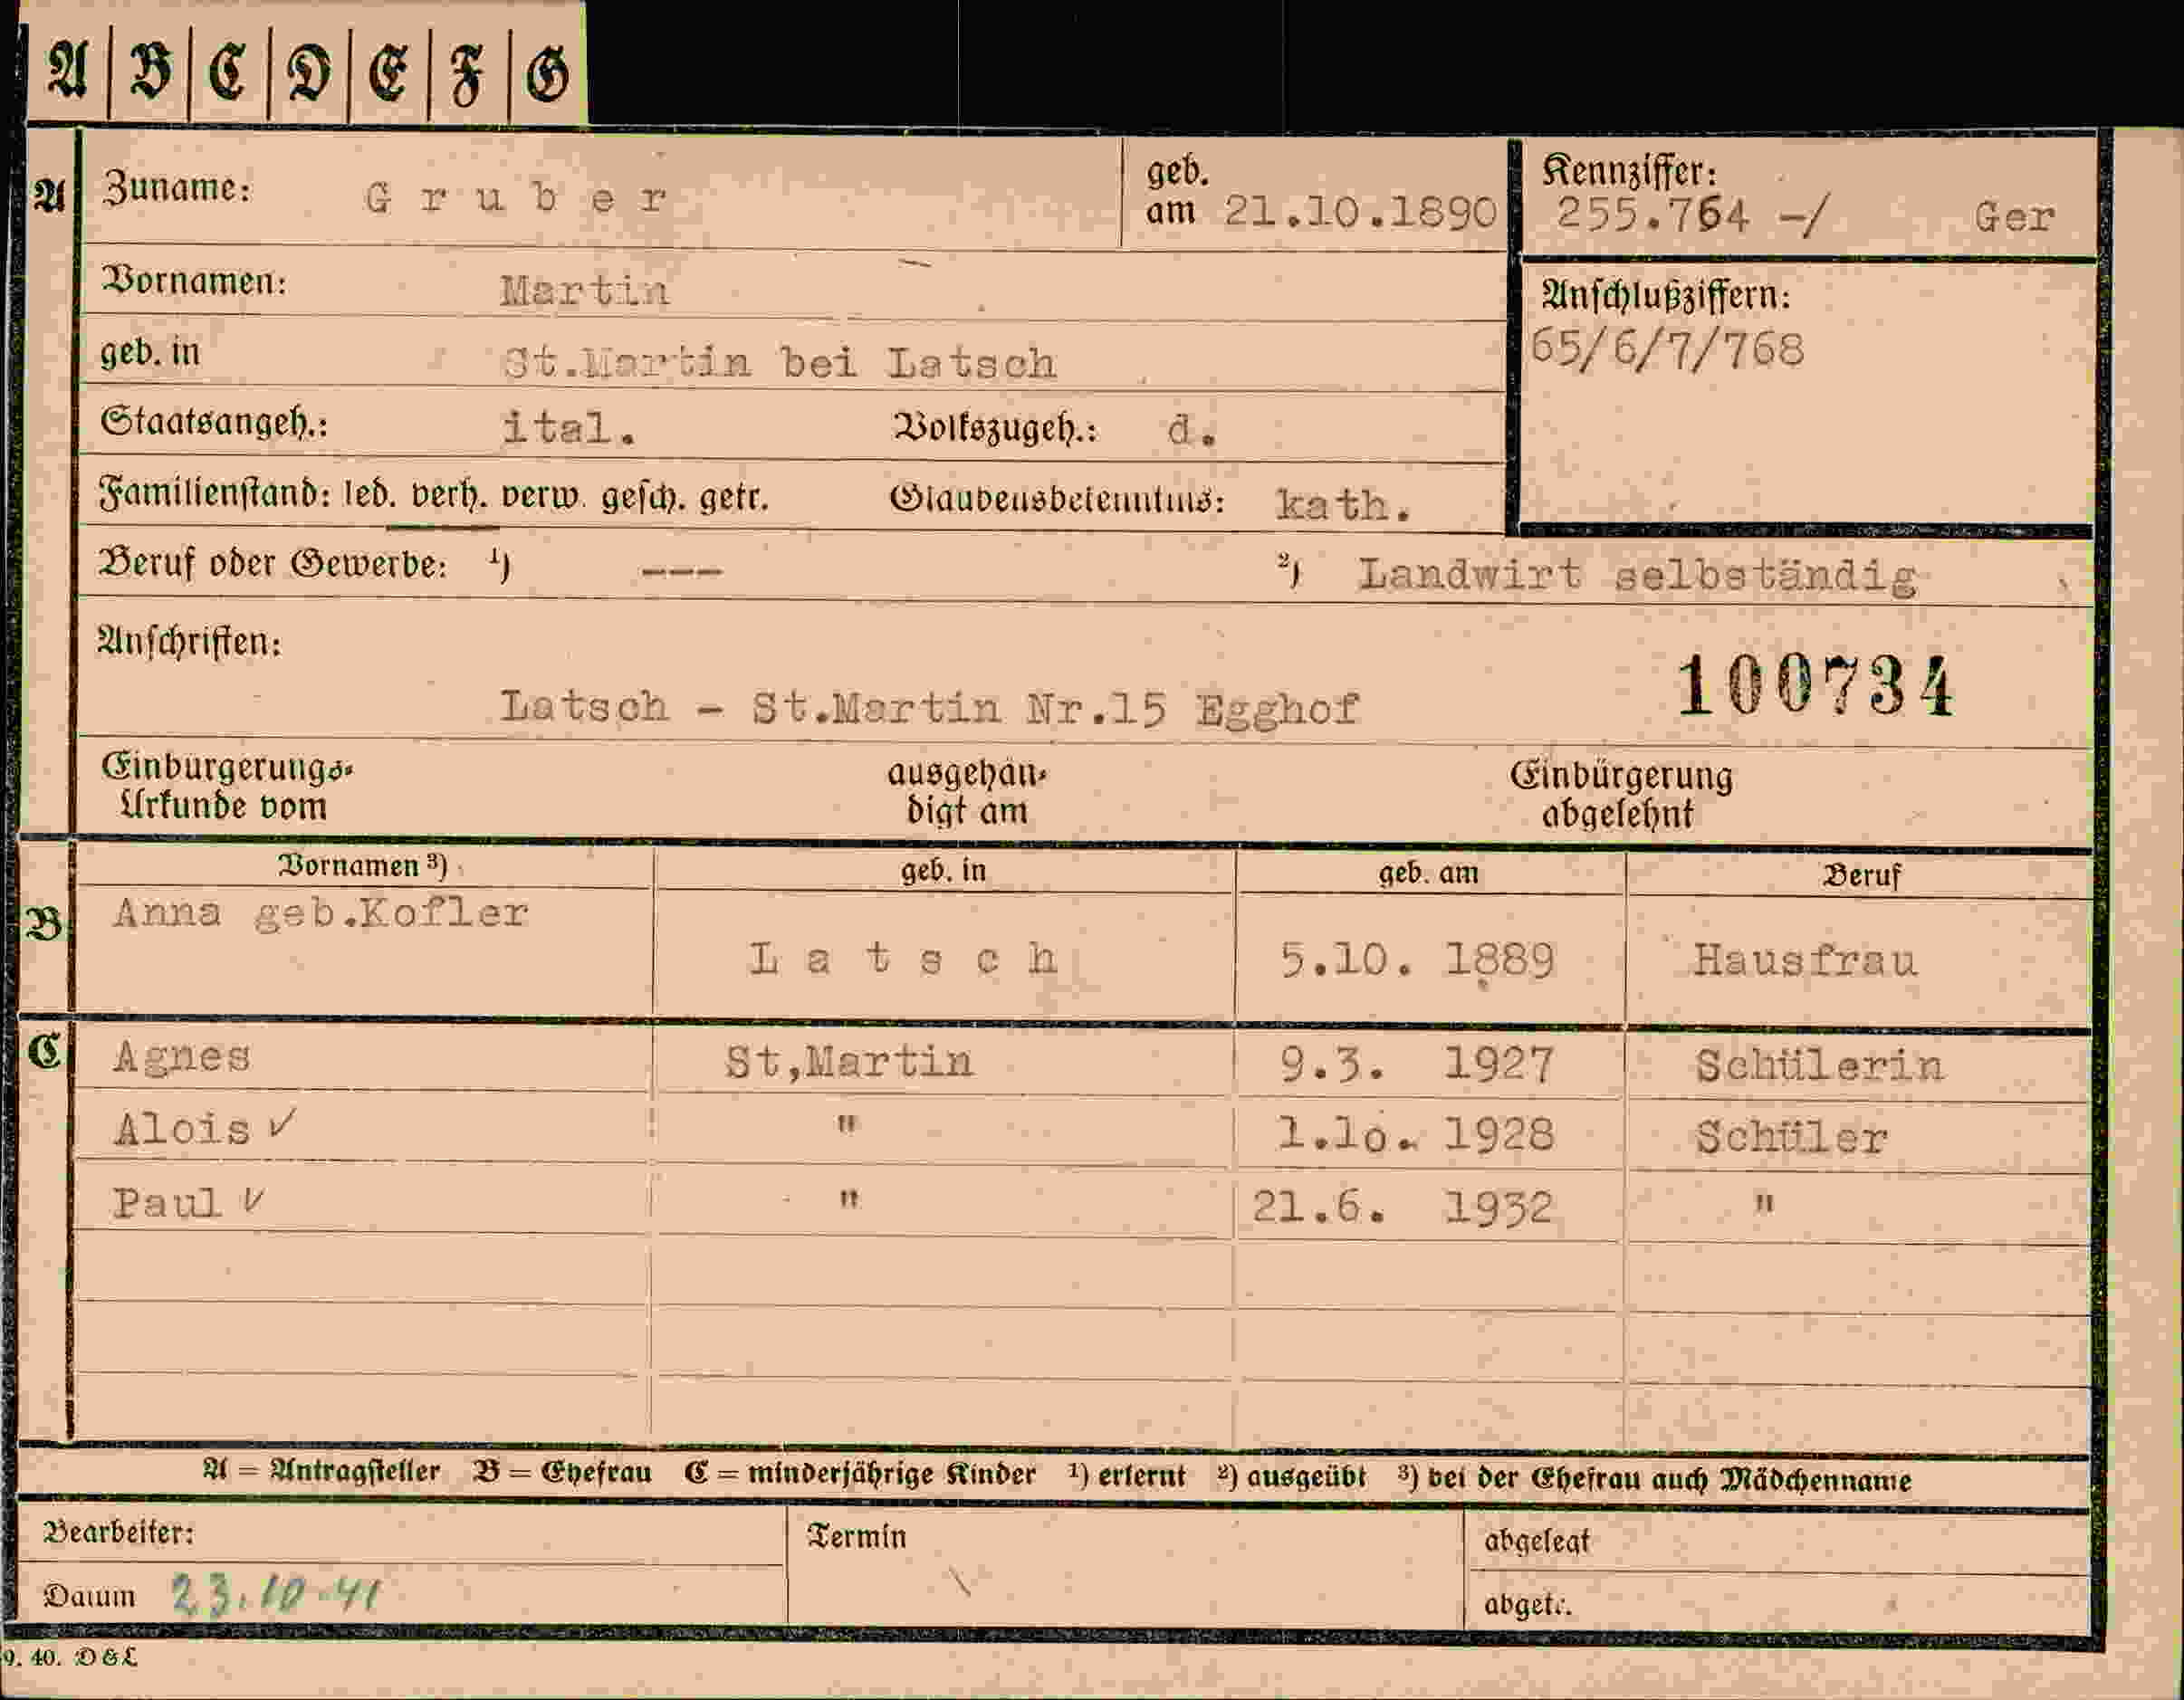 A | B | C | D | E | F | G
A Zuname: Gruber geb. am 21.10.1890 Kennziffer: 255.764 -/ Ger
Vornamen: Martin Anschlußziffern:
geb. in St.Martin bei Latsch 65/6/7/768
Staatsangeh.: ital. Volkszugeh.: d.
Familienstand: led. verh. verw. gesch. getr. Glaubensbekenntnis: kath.
Beruf oder Gewerbe: ¹) --- ²) Landwirt selbständig
Anschriften:
Latsch - St.Martin Nr.15 Egghof 100734
Einbürgerungs- ausgehän- Einbürgerung
Urkunde vom digt am abgelehnt
Vornamen ³) geb. in geb. am Beruf
B Anna geb.Kofler
Latsch 5.10. 1889 Hausfrau
C Agnes St,Martin 9.3. 1927 Schülerin
Alois ✓ " 1.10. 1928 Schüler
Paul ✓ " 21.6. 1932 "
A = Antragsteller B = Ehefrau C = minderjährige Kinder ¹) erlernt ²) ausgeübt ³) bei der Ehefrau auch Mädchenname
Bearbeiter: Termin abgelegt
Datum 23.10.41 abgetr.
9. 40. D & L